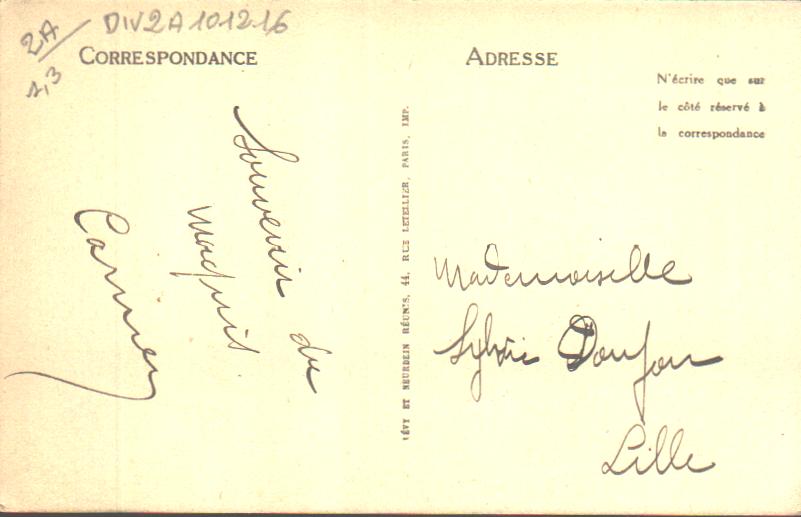 2A
1,3
DIV2A101216
CORRESPONDANCE
ADRESSE
N'écrire que sur
le côté réservé à
la correspondance
Souvenir du
maquis
LÉVY ET NEURDEIN RÉUNIS, 44, RUE LETELLIER, PARIS, IMP.
Mademoiselle
Sylvie
Lille